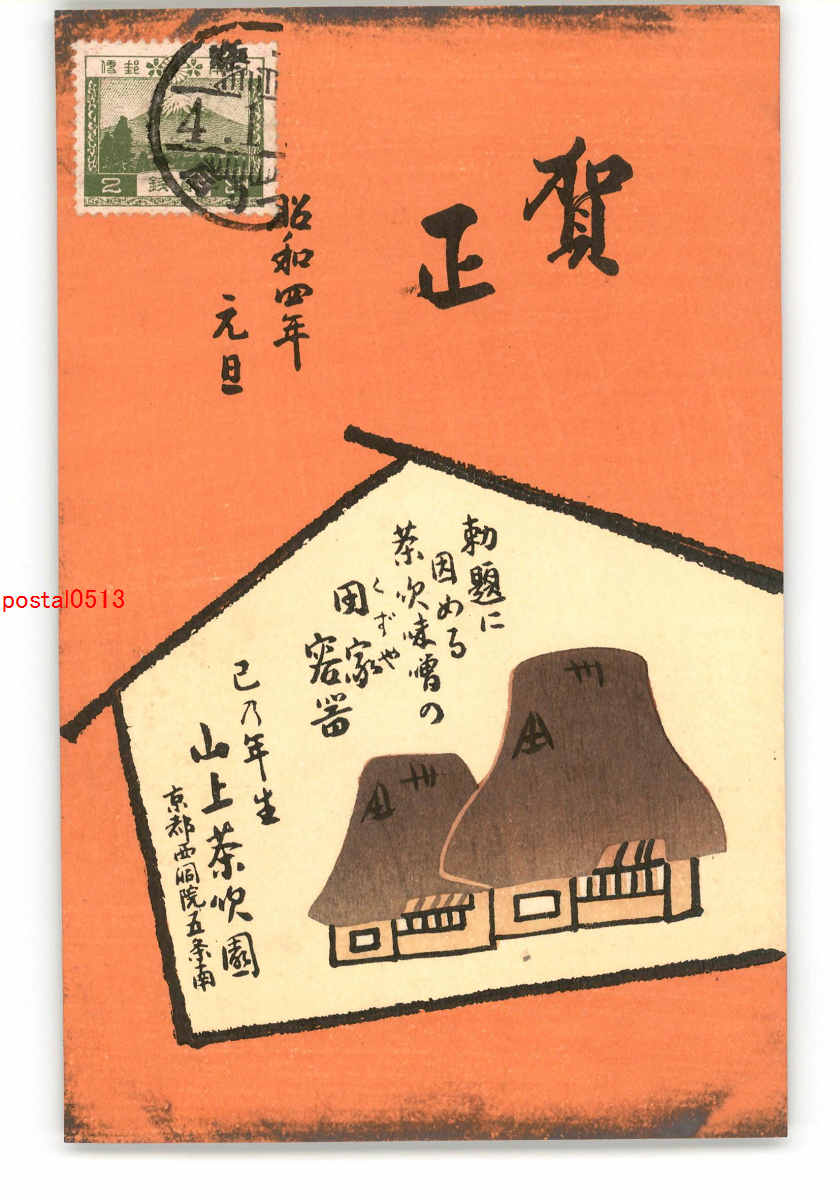 賀
正
昭和四年
元旦
勅題に
因める
茶吹味噌の
田家
くずや
容器
己乃年生
山上茶吹園
京都西洞院五条南
4.1
2 銭
postal0513